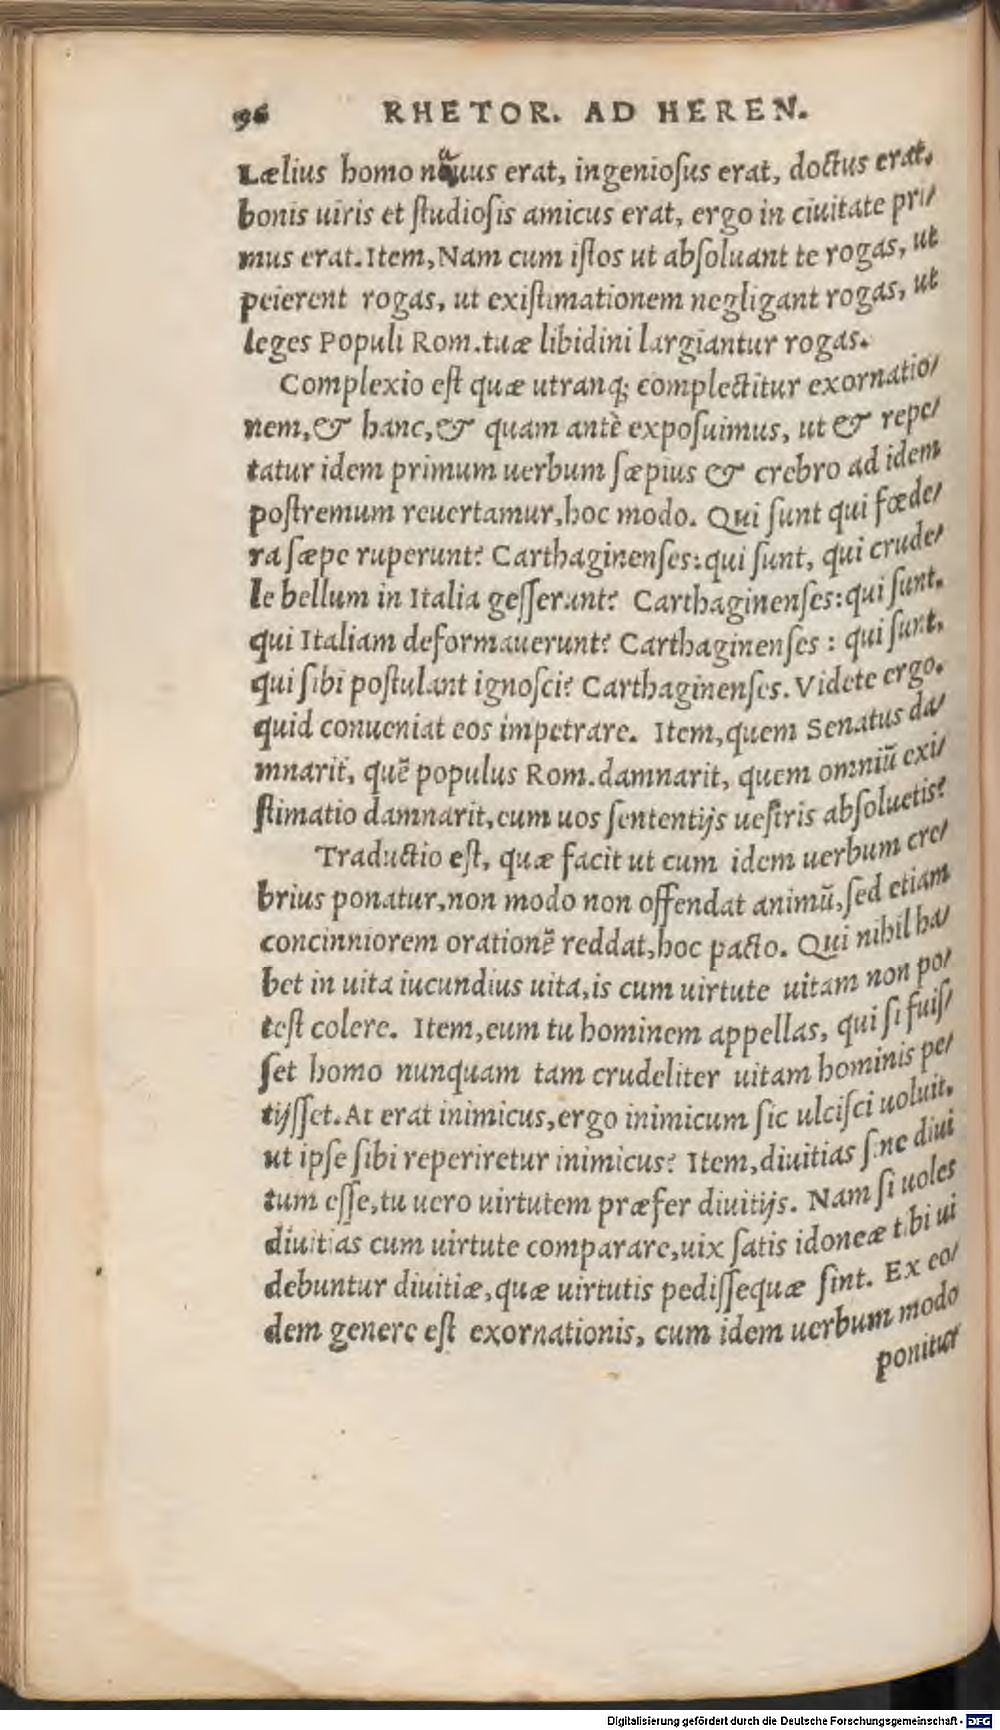 96 RHETOR. AD HEREN.
Lælius homo nauus erat, ingenioſus erat, doctus erat,
bonis uiris et ſtudioſis amicus erat, ergo in ciuitate pri/
mus erat. Item, Nam cum iſtos ut abſoluant te rogas, ut
peierent rogas, ut exiſtimationem negligant rogas, ut
leges Populi Rom. tuæ libidini largiantur rogas.
Complexio eſt quæ utranq; complectitur exornatio/
nem, & hanc, & quam antè expoſuimus, ut & repe/
tatur idem primum uerbum ſæpius & crebro ad idem
poſtremum reuertamur, hoc modo. Qui ſunt qui fœde/
ra ſæpe ruperunt? Carthaginenſes: qui ſunt, qui crude/
le bellum in Italia geſſerunt? Carthaginenſes: qui ſunt,
qui Italiam deformauerunt? Carthaginenſes : qui ſunt,
qui ſibi poſtulant ignoſci? Carthaginenſes. Videte ergo,
quid conueniat eos impetrare. Item, quem Senatus da/
mnarit, quē populus Rom. damnarit, quem omniū exi/
ſtimatio damnarit, eum uos ſententijs ueſtris abſoluetis?
Traductio eſt, quæ facit ut cum idem uerbum cre/
brius ponatur, non modo non offendat animū, ſed etiam
concinniorem orationē reddat, hoc pacto. Qui nihil ha/
bet in uita iucundius uita, is cum uirtute uitam non po/
teſt colere. Item, eum tu hominem appellas, qui ſi fuiſ/
ſet homo nunquam tam crudeliter uitam hominis pe/
tijſſet. At erat inimicus, ergo inimicum ſic ulciſci uoluit,
ut ipſe ſibi reperiretur inimicus? Item, diuitias ſine diui
tum eſſe, tu uero uirtutem præfer diuitijs. Nam ſi uoles
diuitias cum uirtute comparare, uix ſatis idoneæ tibi ui
debuntur diuitiæ, quæ uirtutis pediſſequæ ſint. Ex eo/
dem genere eſt exornationis, cum idem uerbum modo
ponitur
Digitalisierung gefördert durch die Deutsche Forschungsgemeinschaft - DFG